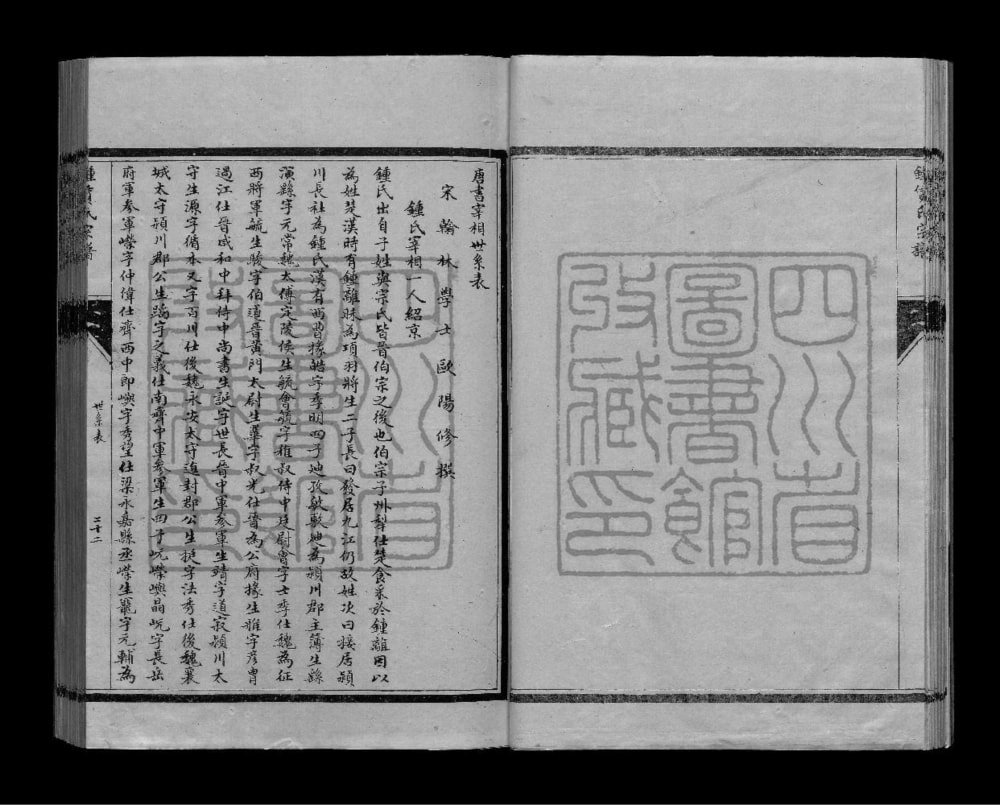 唐書宰相世系表
宋翰林學士歐陽修撰
鍾氏宰相一人紹京
鍾氏出自子姓與宗氏皆晉伯宗之後也伯宗子州犁仕楚食采於鍾離因以
為姓楚漢時有鍾離昧為項羽將生二子長曰發居九江仍故姓次曰接居潁
川長社為鍾氏漢有西曹掾皓字季明四子迪孜敏敷迪為潁川郡主薄生繇
演繇字元常魏太傅定陵侯生毓會毓字稚叔侍中廷尉會字士季仕魏為征
西將軍毓生駿字伯道晉黃門太尉生曄字叔光仕晉為公府掾生雅字彥胄
過江仕晉咸和中拜侍中尚書生誕字世長晉中軍參軍生靖字道寂潁川太
守生源字循本又字百川仕後魏永安太守進封郡公生挺字法秀仕後魏襄
城太守潁川郡公生蹈字之義仕南齊中軍參軍生四子岏嶸嶼晶岏字長岳
府軍參軍嶸字仲偉仕齊西中郎嶼字秀望仕梁永嘉縣丞嶸生寵字元輔為
世系表
二十二
四川省
圖書館
收藏印